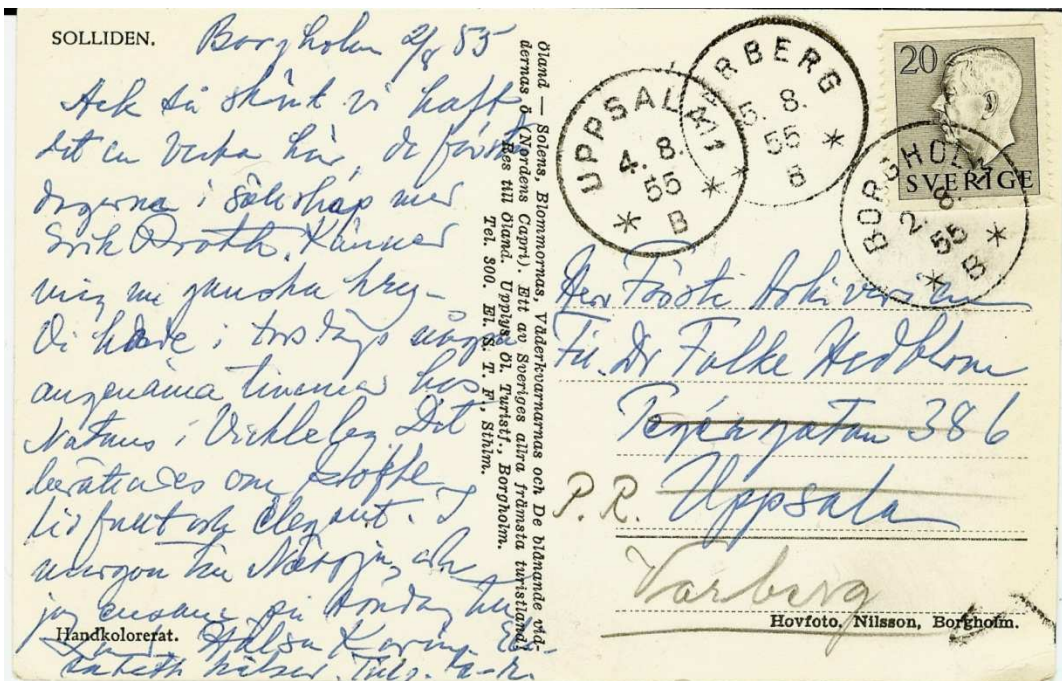 SOLLIDEN.
Borgholm 2/8 55
Ack så skönt vi haft
det en vecka här, de första
dagarna i sällskap med
Erik Känner
mig nu ganska kry.
Vi hade i torsdags några
angenäma timmar hos
i Vickleby. Det
berättades om
I
morgon och
jag ensam på söndag
Hälsn Karin
hälsar.
Handkolorerat.
Öland — Solens, Blommornas, Väderkvarnarnas och De blånande vid-
dernas ö. (Nordens Capri). Ett av Sveriges allra främsta turistland.
Res till Öland. Upplys. Öl. Turistf., Borgholm.
Tel. 300. El. S. T. F., Sthlm.
UPPSALA 1
4. 8.
55
* B *
VARBERG
5. 8.
55
* B *
20
SVERIGE
BORGHOLM
2. 8.
55
* B *
Herr Förste Arkivarien
Fil. Dr Folke Hedblom
386
P. R. Uppsala
Varberg
Hovfoto, Nilsson, Borgholm.